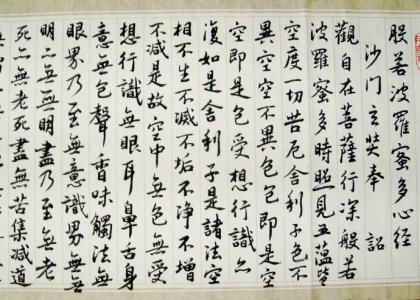 般若波羅蜜多心經
沙門玄奘奉 詔
觀自在菩薩行深般若
波羅蜜多時照見五蘊皆
空度一切苦厄舍利子色不
異空空不異色色即是空
空即是色受想行識亦
復如是舍利子是諸法空
相不生不滅不垢不净不增
不減是故空中無色無受
想行識無眼耳鼻舌身
意無色聲香味觸法無
眼界乃至無意識界無無
明亦無無明盡乃至無老
死亦無老死盡無苦集滅道